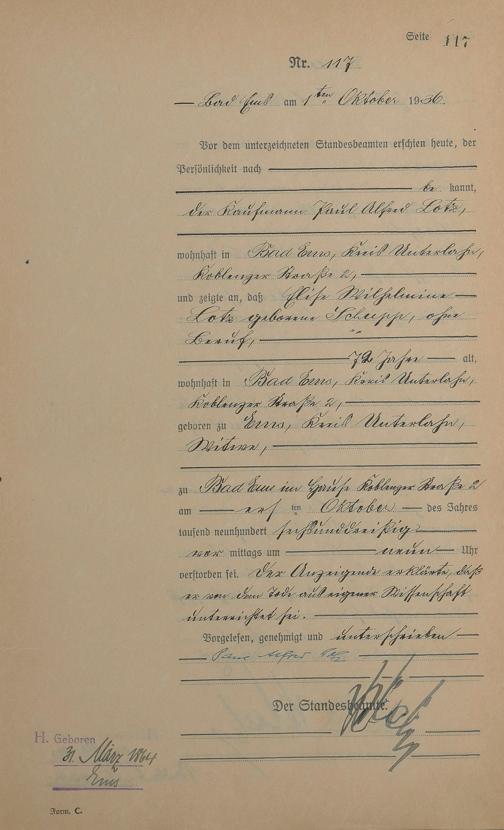 Seite 117
Nr. 117
Bad Ems am 1ten Oktober 1936.
Vor dem unterzeichneten Standesbeamten erschien heute, der
Persönlichkeit nach
be kannt,
der Kaufmann Paul Alfred Lotz,
wohnhaft in Bad Ems, Kreis Unterlahn,
Koblenzer Straße 2,
und zeigte an, daß Elise Wilhelmine
Lotz geborene Schupp, ohne
Beruf,
72 Jahre alt,
wohnhaft in Bad Ems, Kreis Unterlahn,
Koblenzer Straße 2,
geboren zu Ems, Kreis Unterlahn,
Witwe,
zu Bad Ems im Hause Koblenzer Straße 2
am ersten Oktober des Jahres
tausend neunhundert sechsunddreißig
vor mittags um neun Uhr
verstorben sei. Der Anzeigende erklärte, daß
er von dem Tode aus eigener Wissenschaft
unterrichtet sei.
Vorgelesen, genehmigt und unterschrieben
Paul Alfred Lotz
Der Standesbeamte.
H. Geboren
31. März 1864
Ems
Form. C.